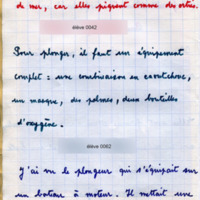 de mer, car elles piquent comme des orties.
élève 0042
Pour plonger, il faut un équipement
complet : une combinaison en caoutchouc,
un masque, des palmes, deux bouteilles
d'oxygène.
élève 0082
J'ai vu le plongeur qui s'équipait sur
un bateau à moteur. Il mettait une